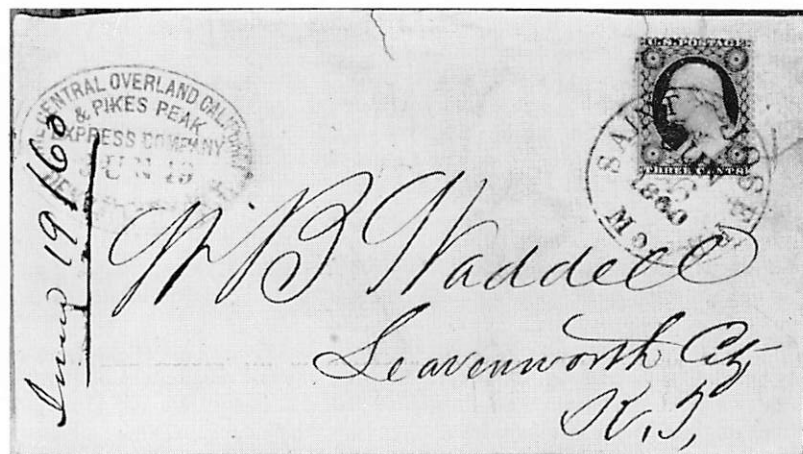 CENTRAL OVERLAND CALIFORNIA
& PIKES PEAK
EXPRESS COMPANY
JUN 19
U.S. POSTAGE
THREE CENTS
SAINT JOSEPH
1860
MO
June 19/60
W B Waddell
Leavenworth City
K. T,